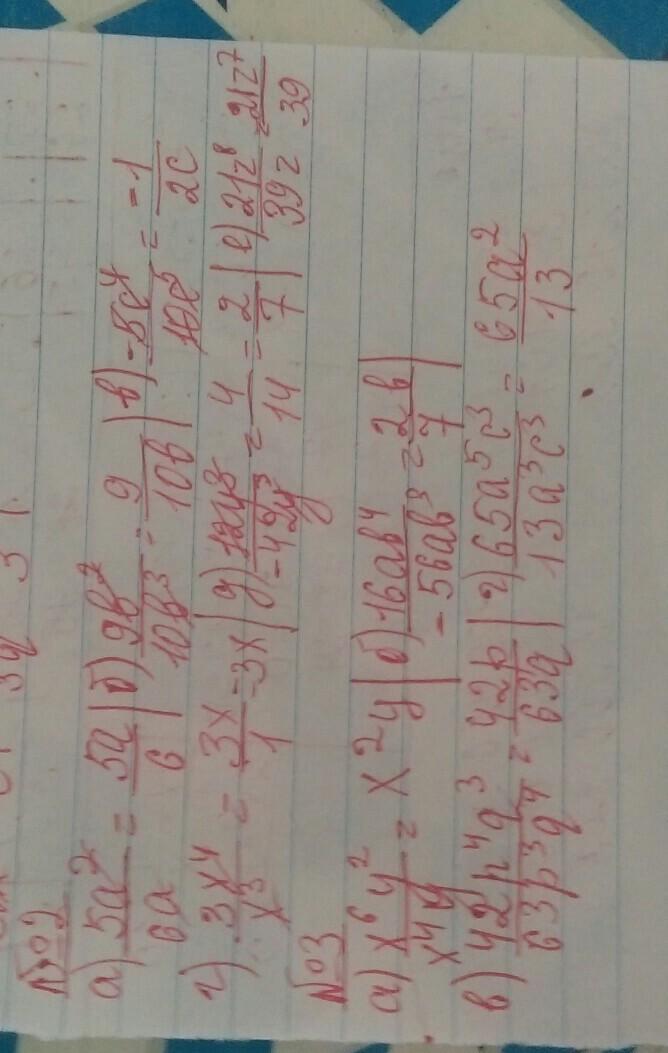 №2
а) 5a²/6a = 5a/6 | б) 9b²/10b³ = 9/10b | в) -5c⁴/10c⁵ = -1/2c
г) 3x⁴/x³ = 3x/1 = 3x | д) 12y³/-42y³ = 4/14 = 2/7 | е) 21z⁸/39z = 21z⁷/39
№3
а) x⁶y²/x⁴y = x²y | б) 16ab⁴/-56ab³ = 2b/7 |
в) 42p⁴q³/63p³q⁴ = 42p/63q | г) 65a⁵c³/13a³c³ = 65a²/13